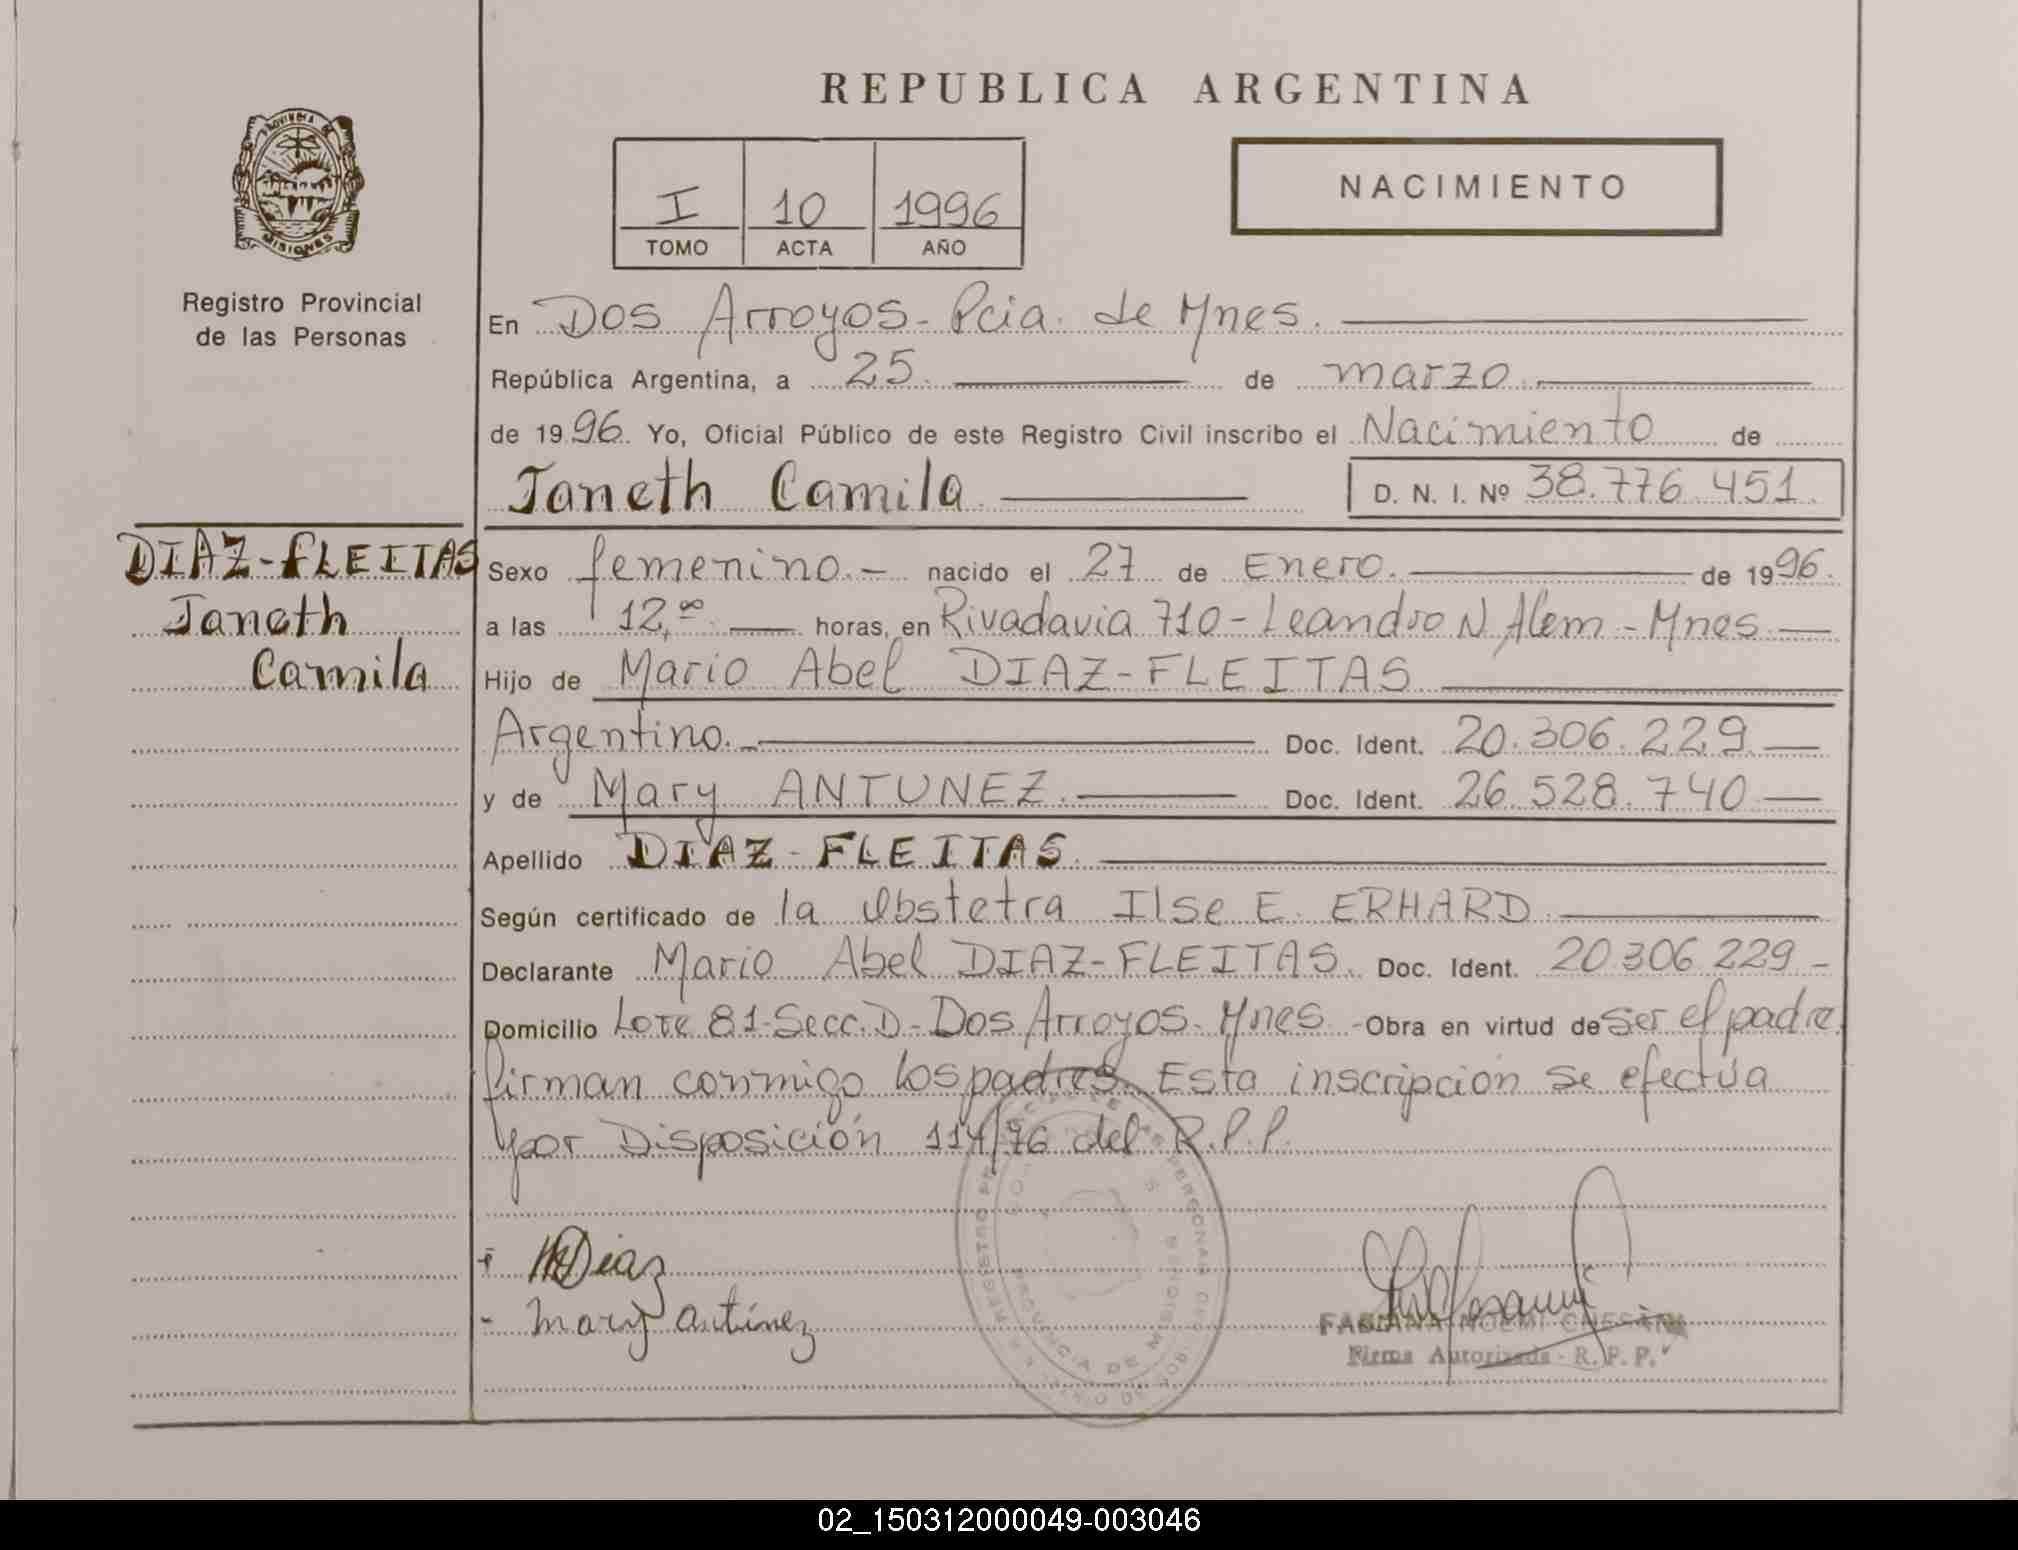 REPUBLICA ARGENTINA
PROVINCIA DE
MISIONES
Registro Provincial
de las Personas
I 10 1996
TOMO ACTA AÑO
NACIMIENTO
En Dos Arroyos - Pcia. de Mnes.
República Argentina, a 25. de marzo
de 1996. Yo, Oficial Público de este Registro Civil inscribo el Nacimiento de
Janeth Camila D. N. I. Nº 38.776.451.
DIAZ-FLEITAS
Janeth
Camila
Sexo femenino.- nacido el 27 de Enero. de 1996.
a las 12,⁰⁰ horas, en Rivadavia 710 - Leandro N. Alem - Mnes.
Hijo de Mario Abel DIAZ-FLEITAS
Argentino.- Doc. Ident. 20.306.229
y de Mary ANTUNEZ. Doc. Ident. 26.528.740
Apellido DIAZ-FLEITAS.
Según certificado de la Obstetra Ilse E. ERHARD
Declarante Mario Abel DIAZ-FLEITAS. Doc. Ident. 20.306.229-
Domicilio Lote 81-Secc.D-Dos Arroyos-Mnes. - Obra en virtud de Ser el padre.
firman conmigo los padres. Esta inscripción se efectúa
por Disposición 114/76 del R.P.P.
Diaz
- Mary Antúnez
PROVINCIA DE MISIONES
FABIANA NOEMI
Firma Autorizada - R. P. P.
02_150312000049-003046